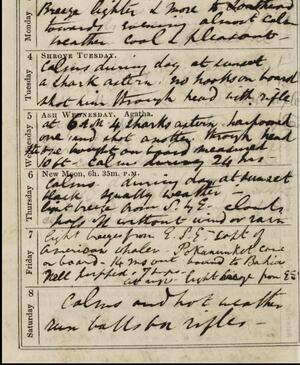 Monday
Breeze lighter & more to Southward
towards evening almost calm
weather cool & pleasant
4 SHROVE TUESDAY.
Tuesday
Calms during day at sunset
a shark astern no hooks on board
shot him through head with rifle
5 ASH WEDNESDAY. Agatha.
Wednesday
at 6 AM 4 sharks astern harpooned
one and shot another through head
the one bought on board measured
10ft. Calm during 24 hrs
6 NEW MOON, 6h. 35m. P.M.
Thursday
Calms during day at sunset
black squally weather
light breeze from S. & E. clouds
pass off without wind or rain
7
Friday
light breezes from E.S.E. Capt of
American whaler Pokanunket came
on board 14 mos out bound to Bahia
Well
light breeze from ESE
8
Saturday
Calms and hot weather
run balls for rifles